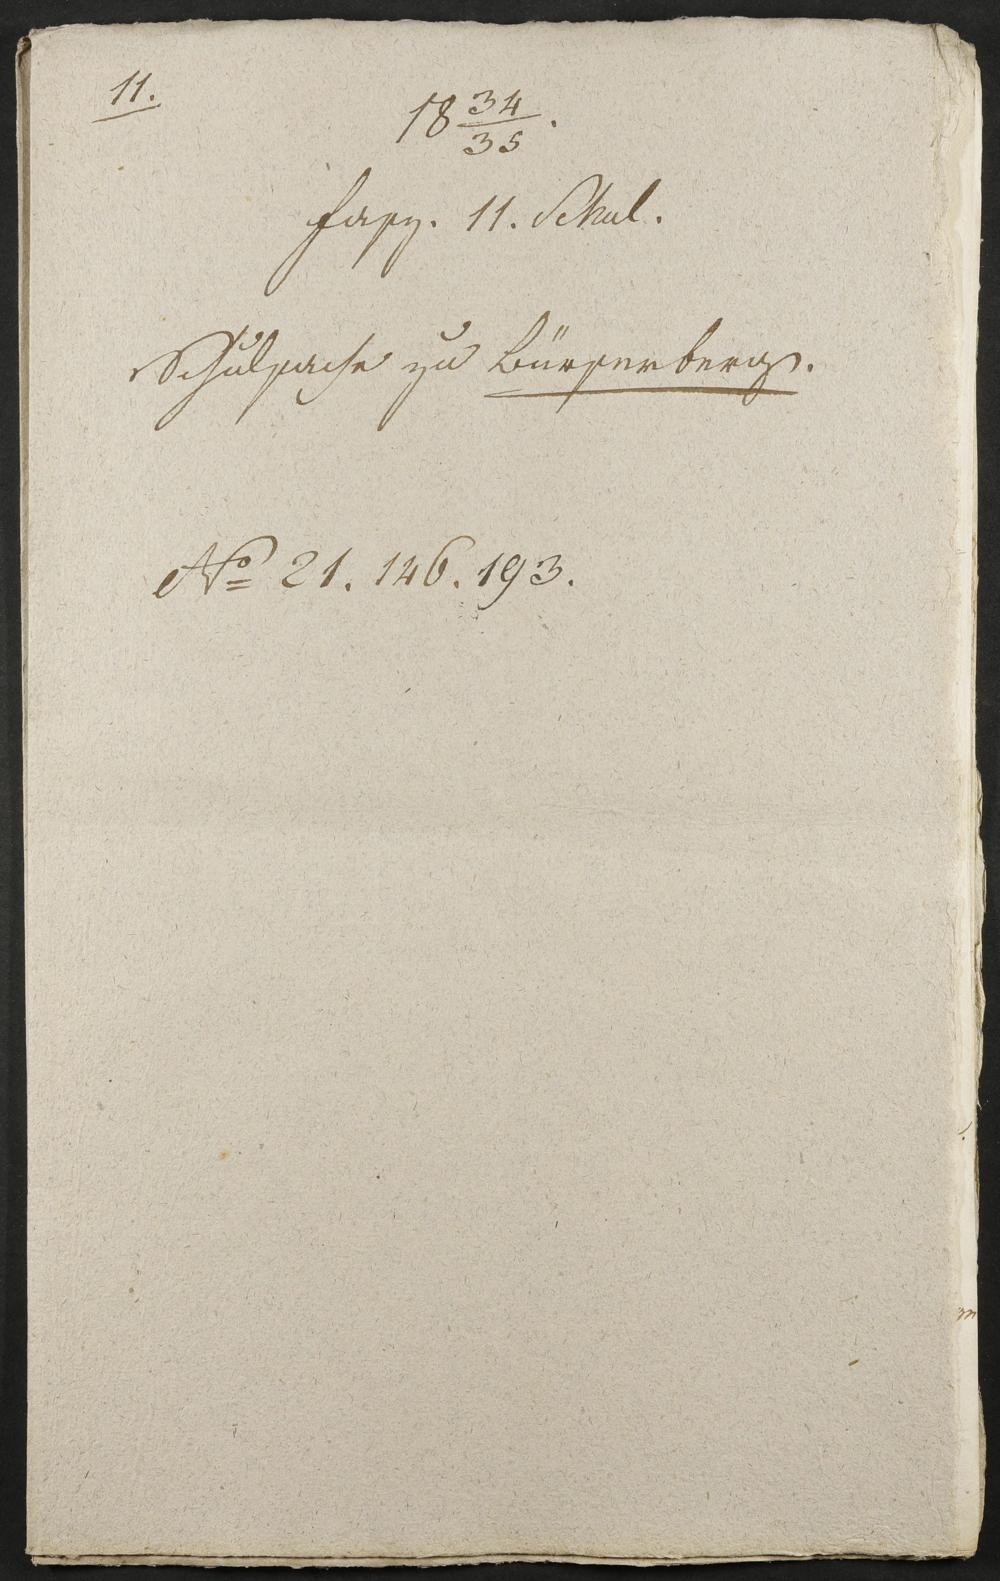 11.
18 34/35.
Fasz. 11. Schul.
Schulsache zu Bürserberg.
No 21. 146. 193.